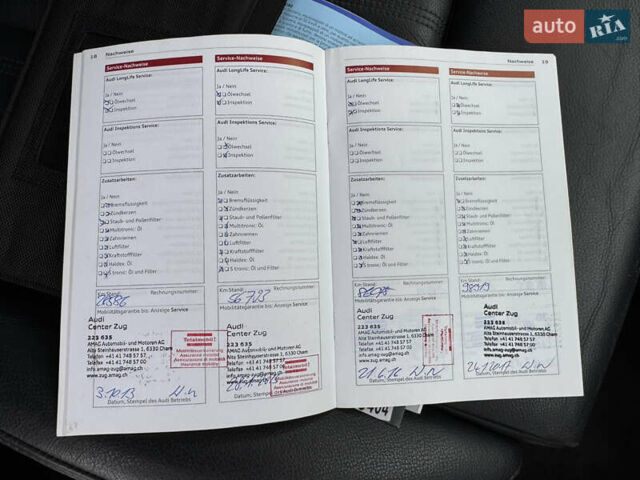 auto RIA.com
18 Nachweise
Service-Nachweise
Audi LongLife Service:
Ja / Nein
Ölwechsel
Inspektion
Audi Inspektions Service:
Ja / Nein
Ölwechsel
Inspektion
Zusatzarbeiten:
Ja / Nein
Bremsflüssigkeit
Zündkerzen
Staub- und Pollenfilter
Multitronic: Öl
Zahnriemen
Luftfilter
Kraftstofffilter
Haldex: Öl
S tronic: Öl und Filter
Km Stand: Rechnungsnummer:
Mobilitätsgarantie bis: Anzeige Service
Audi
Center Zug
223 635
AMAG Automobil- und Motoren AG
Alte Steinhauserstrasse 1, 6330 Cham
Telefon +41 41 748 57 57
Telefax +41 41 748 57 00
info.amag-zug@amag.ch
www.zug.amag.ch
Totalmobil!
Mobilitätsversicherung
Assurance mobilité
Assicurazione di mobilità
3.10.13
Datum, Stempel des Audi Betriebs
Service-Nachweise
Audi LongLife Service:
Ja / Nein
Ölwechsel
Inspektion
Audi Inspektions Service:
Ja / Nein
Ölwechsel
Inspektion
Zusatzarbeiten:
Ja / Nein
Bremsflüssigkeit
Zündkerzen
Staub- und Pollenfilter
Multitronic: Öl
Zahnriemen
Luftfilter
Kraftstofffilter
Haldex: Öl
S tronic: Öl und Filter
Km Stand: Rechnungsnummer:
56703
Mobilitätsgarantie bis: Anzeige Service
Audi
Center Zug
223 635
AMAG Automobil- und Motoren AG
Alte Steinhauserstrasse 1, 6330 Cham
Telefon +41 41 748 57 57
Telefax +41 41 748 57 00
info.amag-zug@amag.ch
www.zug.amag.ch
Datum, Stempel des Audi
Nachweise 19
Service-Nachweise
Audi LongLife Service:
Ja / Nein
Ölwechsel
Inspektion
Audi Inspektions Service:
Ja / Nein
Ölwechsel
Inspektion
Zusatzarbeiten:
Ja / Nein
Bremsflüssigkeit
Zündkerzen
Staub- und Pollenfilter
Multitronic: Öl
Zahnriemen
Luftfilter
Kraftstofffilter
Haldex: Öl
S tronic: Öl und Filter
Km Stand: Rechnungsnummer:
Mobilitätsgarantie bis: Anzeige Service
Audi
Center Zug
223 635
AMAG Automobil- und Motoren AG
Alte Steinhauserstrasse 1, 6330 Cham
Telefon +41 41 748 57 57
Telefax +41 41 748 57 00
info.amag-zug@amag.ch
www.zug.amag.ch
21.6.16
Datum, Stempel des Audi Betriebs
Service-Nachweise
Audi LongLife Service:
Ja / Nein
Ölwechsel
Inspektion
Audi Inspektions Service:
Ja / Nein
Ölwechsel
Inspektion
Zusatzarbeiten:
Ja / Nein
Bremsflüssigkeit
Zündkerzen
Staub- und Pollenfilter
Multitronic: Öl
Zahnriemen
Luftfilter
Kraftstofffilter
Haldex: Öl
S tronic: Öl und Filter
Km Stand: Rechnungsnummer:
Mobilitätsgarantie bis: Anzeige Service
Audi
Center Zug
223 635
AMAG Automobil- und Motoren AG
Alte Steinhauserstrasse 1, 6330 Cham
Telefon +41 41 748 57 57
Telefax +41 41 748 57 00
info.amag-zug@amag.ch
www.zug.amag.ch
Datum, Stempel des Audi Betriebs